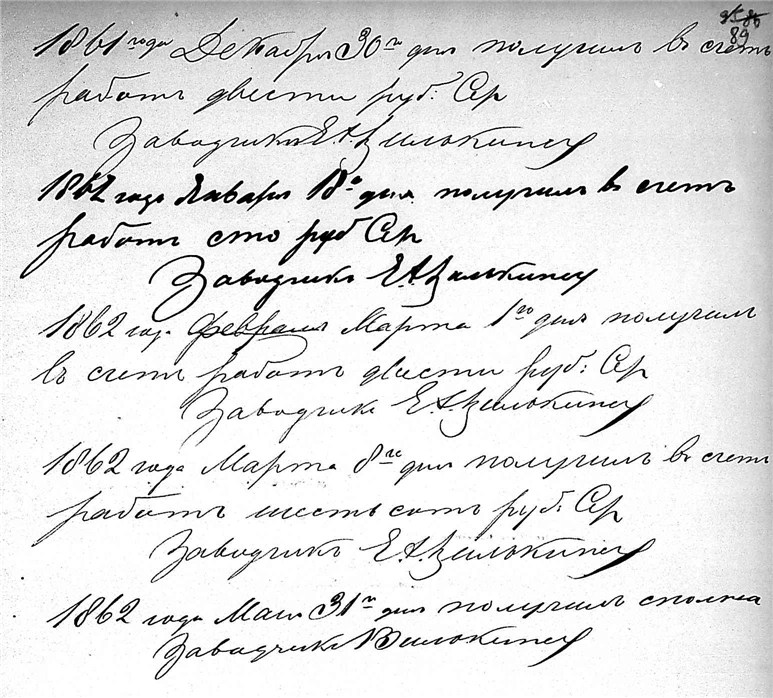 89
1861 года Декабря 30го дня получил въ счетъ
работъ двести руб: Сер
Заводчикъ Е. А. Вилькинсъ
1862 года Января 18го дня получил въ счетъ
работъ сто руб Сер
Заводчикъ Е. А. Вилькинсъ
1862 года Февраля Марта 1го дня получилъ
въ счетъ работъ двести руб: Сер
Заводчикъ Е. А. Вилькинсъ
1862 года Марта 8го дня получилъ въ счетъ
работъ шестьсотъ руб: Сер
Заводчикъ Е. А. Вилькинсъ
1862 года Мая 31го дня получилъ сполна
Заводчикъ Вилькинсъ